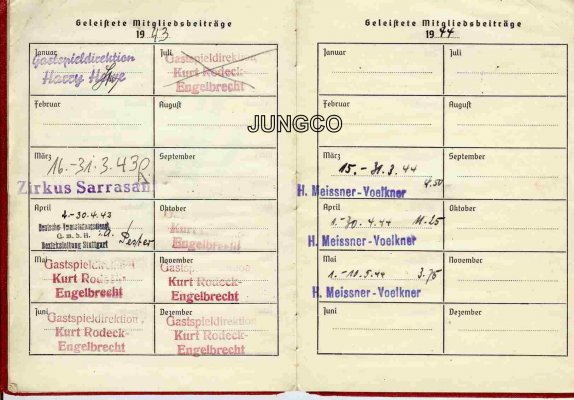 Geleistete Mitgliedsbeiträge
1943
Januar
Gastspieldirektion
Harry
Juli
Gastspieldirektion
Kurt Rodeck-
Engelbrecht
Februar
August
März
16.-31.3.43
Zirkus Sarrasani
September
April
2.-30.4.43
G.m.b.H.
Bezirksleitung Stuttgart
Oktober
Kurt
Engelbrecht
Mai
Gastspieldirektion
Kurt Rodeck-
Engelbrecht
November
Gastspieldirektion
Kurt Rodeck-
Engelbrecht
Juni
Gastspieldirektion
Kurt Rodeck-
Engelbrecht
Dezember
Gastspieldirektion
Kurt Rodeck-
Engelbrecht
JUNGCO
Geleistete Mitgliedsbeiträge
1944
Januar
Juli
Februar
August
März
15.-31.3.44
4.50
H. Meissner-Voelkner
September
April
1.-30.4.44 11.25
H. Meissner-Voelkner
Oktober
Mai
1.-10.5.44 3.75
H. Meissner-Voelkner
November
Juni
Dezember